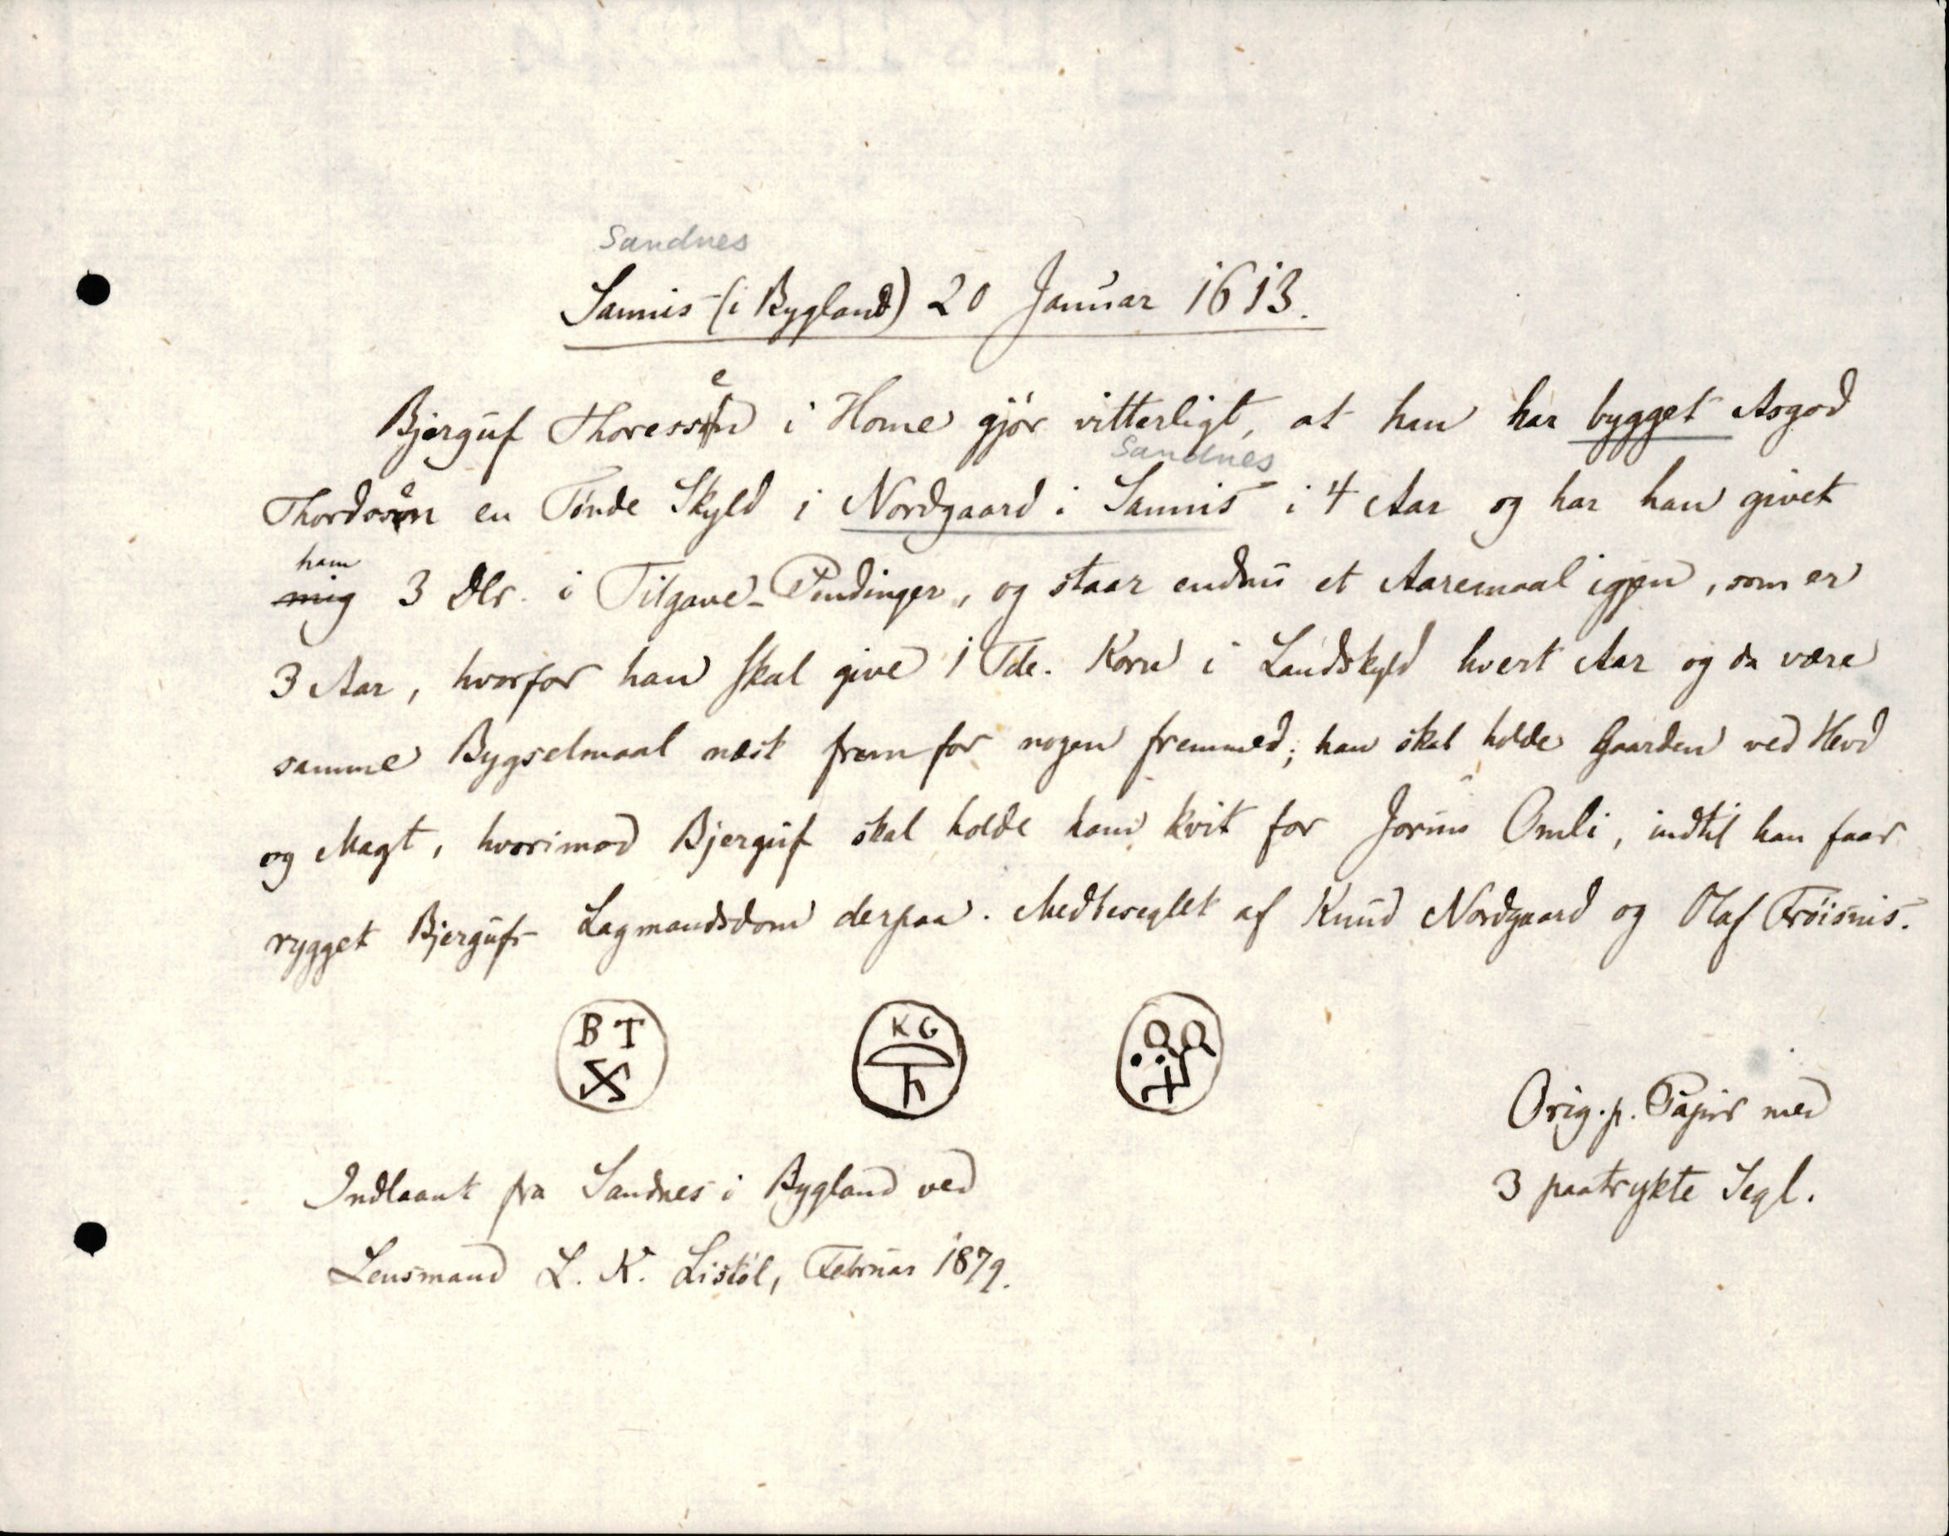 Sandnes
Sannis (i Bygland) 20 Januar 1613.
Bjerguf Thoressen i Home gjør vitterligt, at han har bygget Asgod
Sandnes
Thordssøn en Tønde Skyld i Nordgaard i Sannis i 4 Aar og har han givet
ham
mig 3 Dlr. i Tilgave-Pendinger, og staar endnu et Aaremaal igjen, som er
3 Aar, hvorfor han skal give 1 Tde. Korn i Landskyld hvert Aar og da være
samme Bygselmaal næst frem for nogen fremmed; han skal holde Gaarden ved Hevd
og Magt, hvorimod Bjerguf skal holde ham kvit for Jorun Omli, indtil han faar
rygget Bjergufs Lagmandsdom derpaa. Medbeseglet af Knud Nordgaard og Olaf Frøisnis.
B T
K G
Orig. p. Papir med
3 paatrykte Segl.
Indlaant fra Sandnes i Bygland ved
Lensmand L. K. Listøl, Februar 1879.